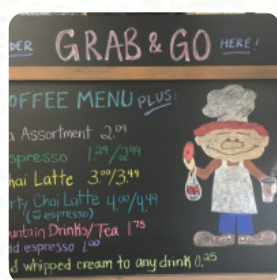 DER GRAB & GO HERE!
OFFEE MENU PLUS:
a Assortment 2.09
spresso 1.29/2.99
hai Latte 3.00/3.49
rty Chai Latte 4.00/4.99
(w espresso)
untain Drinks/Tea 1.75
d espresso 1.00
d whipped cream to any drink 0.25